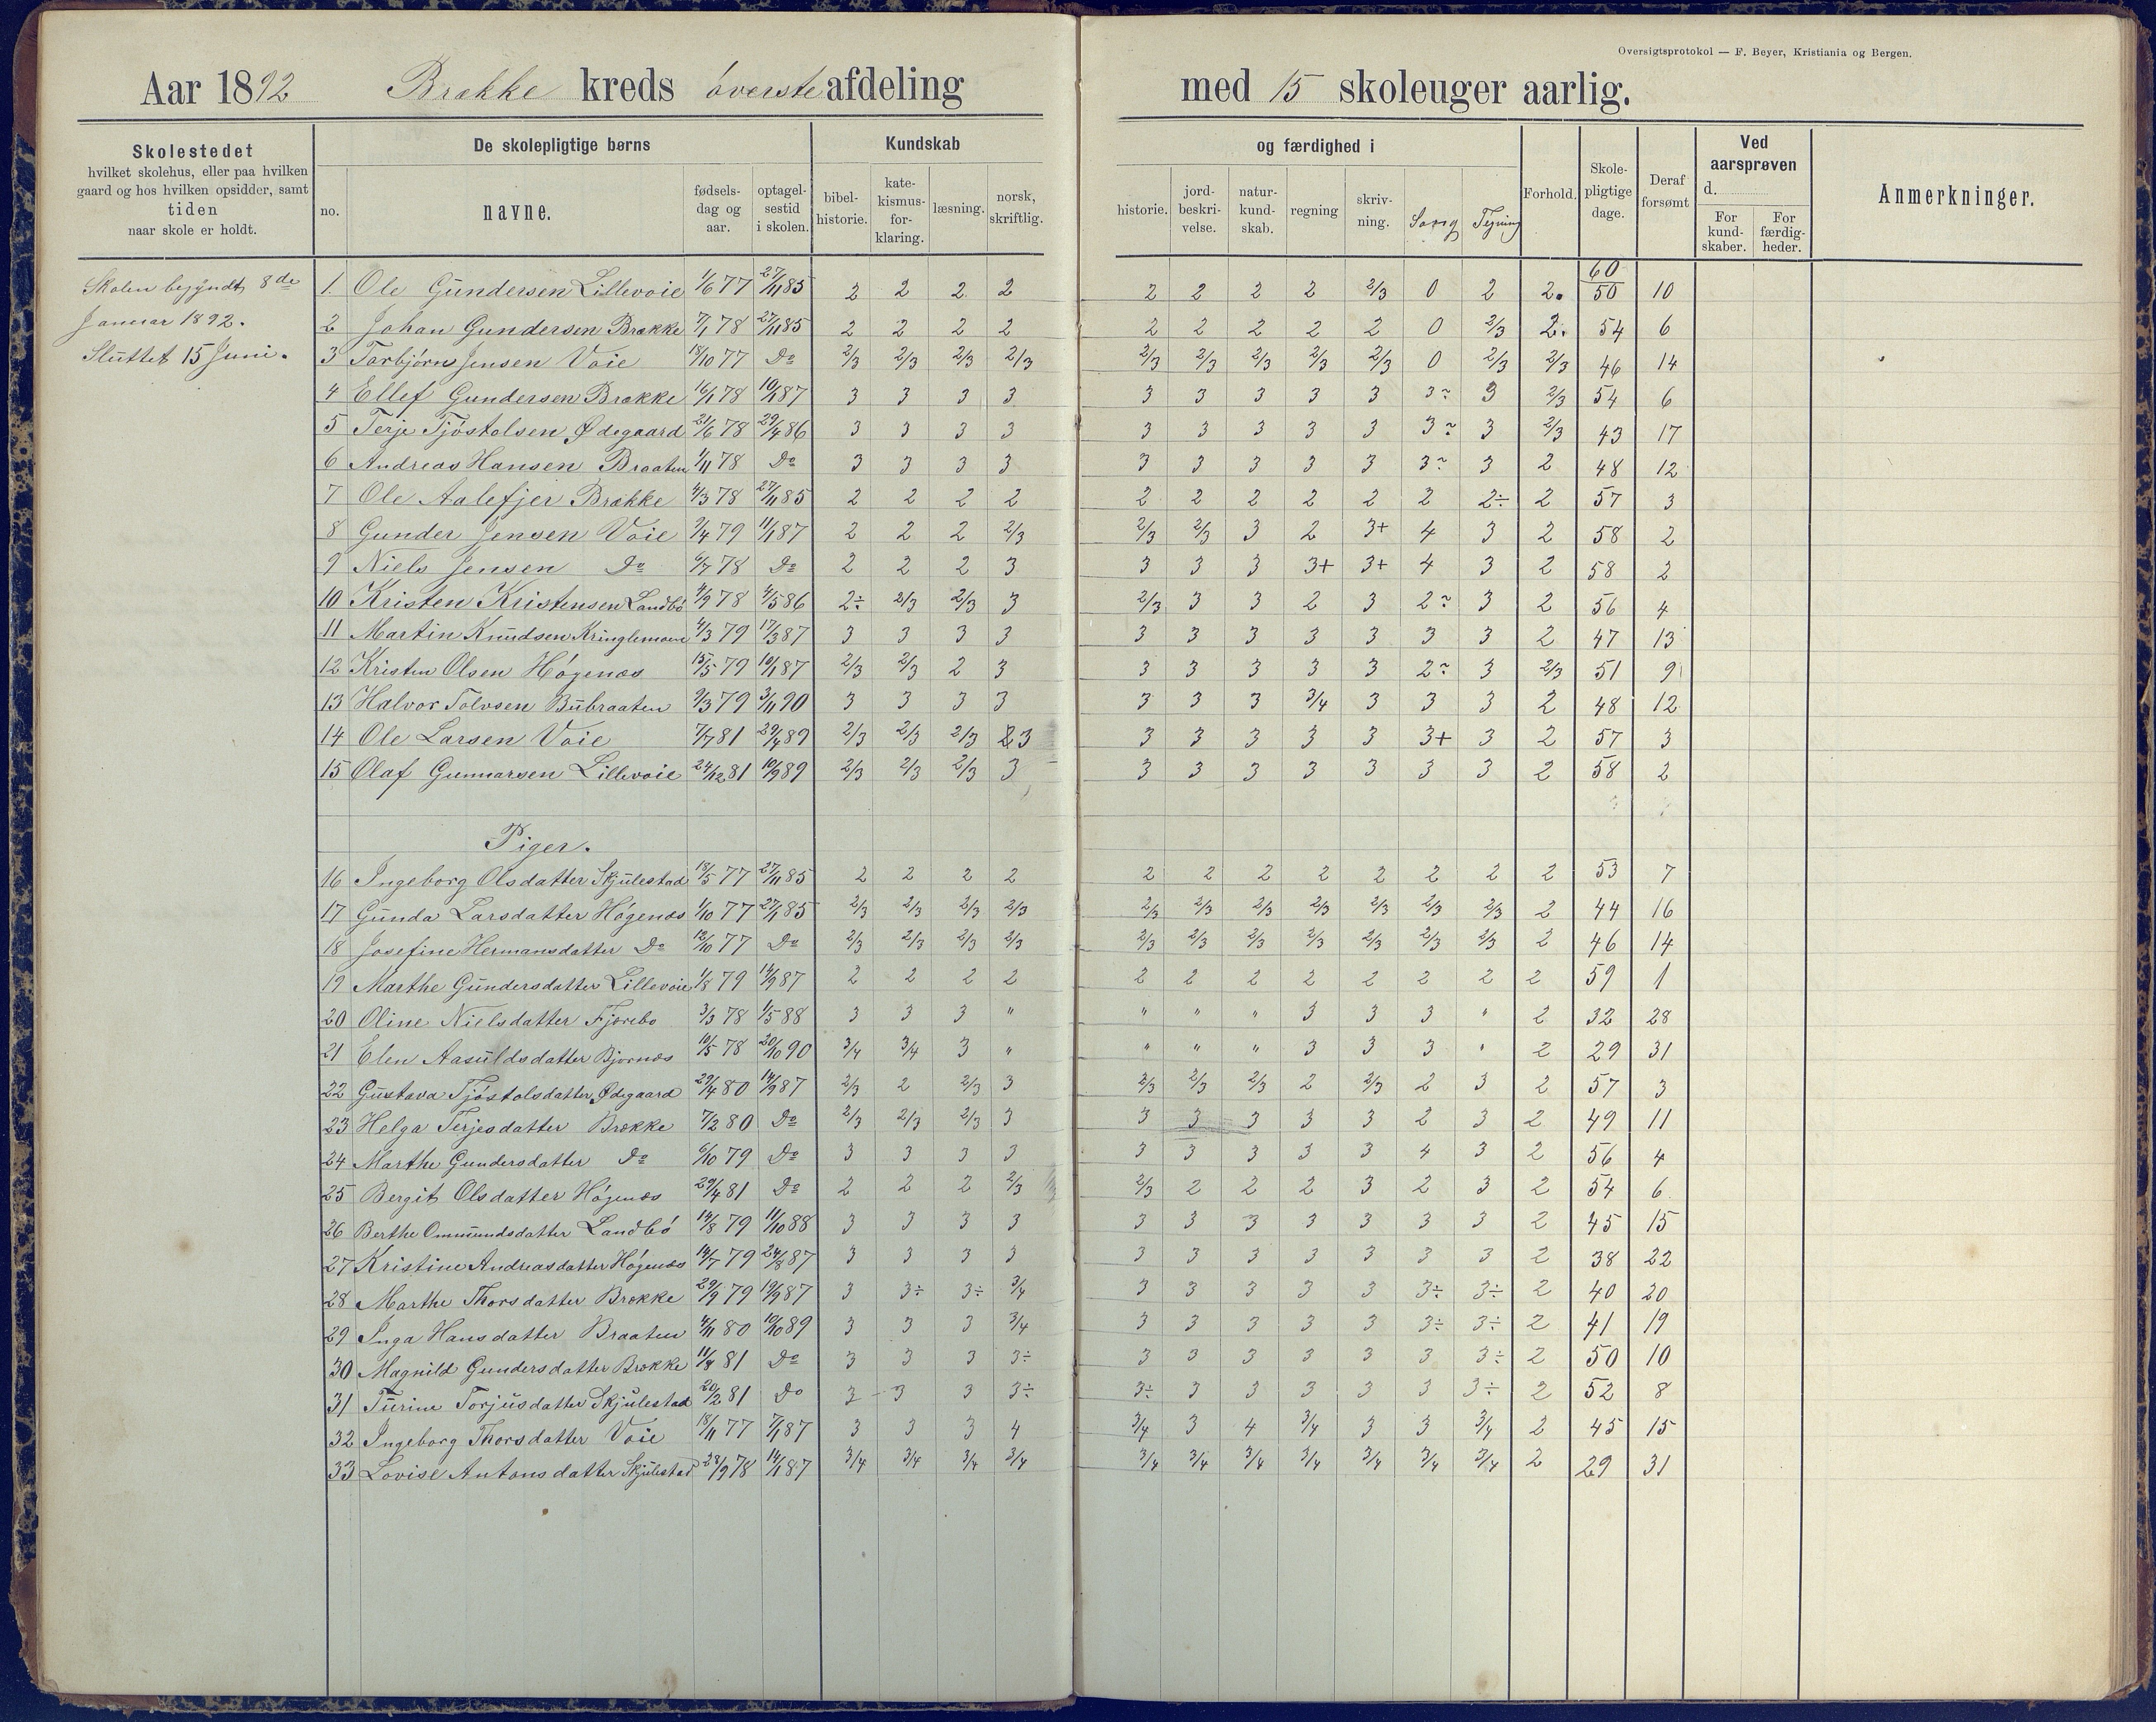 Oversigtsprotokol — F. Beyer, Kristiania og Bergen.
Aar 1892 Brække kreds øverste afdeling med 15 skoleuger aarlig.
Skolestedet
hvilket skolehus, eller paa hvilken
gaard og hos hvilken opsidder, samt
tiden
naar skole er holdt.
De skolepligtige børns
no. navne. fødsels-dag og aar. optagel-sestid i skolen.
Kundskab og færdighed i
bibel-historie. kate-kismus-for-klaring. læsning. norsk, skriftlig. historie. jord-beskri-velse. natur-kund-skab. regning skriv-ning. Sang Tegning
Forhold. Skole-pligtige dage. Deraf forsømt
Ved aarsprøven d.
For kund-skaber. For færdig-heder.
Anmerkninger.
Skolen begyndt 8de
Januar 1892.
Sluttet 15 Juni.
60
1. Ole Gundersen Lillevoie 1/6 77 27/11 85 2 2 2 2 2 2 2 2 2/3 0 2 2. 50 10
2 Johan Gundersen Brække 7/1 78 27/11 85 2 2 2 2 2 2 2 2 2 0 2/3 2. 54 6
3 Torbjørn Jensen Voie 18/10 77 Do 2/3 2/3 2/3 2/3 2/3 2/3 2/3 2/3 2/3 0 2/3 2/3 46 14
4 Ellef Gundersen Brække 16/1 78 10/1 87 3 3 3 3 3 3 3 3 3 3~ 3 2/3 54 6
5 Terje Tjøstolsen Ødegaard 21/6 78 29/4 86 3 3 3 3 3 3 3 3 3 3~ 3 2/3 43 17
6 Andreas Hansen Braaten 1/11 78 Do 3 3 3 3 3 3 3 3 3 3~ 3 2 48 12
7 Ole Aalefjer Brække 4/3 78 27/11 85 2 2 2 2 2 2 2 2 2 2 2÷ 2 57 3
8 Gunder Jensen Voie 9/4 79 11/1 87 2 2 2 2/3 2/3 2/3 3 2 3+ 4 3 2 58 2
9 Niels Jensen Do 6/7 78 Do 2 2 2 3 3 3 3 3+ 3+ 4 3 2 58 2
10 Kristen Kristensen Landbø 4/9 78 4/5 86 2÷ 2/3 2/3 3 2/3 3 3 2 3 2~ 3 2 56 4
11 Martin Knudsen Kringlemoen 4/3 79 17/3 87 3 3 3 3 3 3 3 3 3 3 3 2 47 13
12 Kristen Olsen Høgenæs 15/5 79 10/1 87 2/3 2/3 2 3 3 3 3 3 3 2~ 3 2/3 51 9
13 Halvor Tolvsen Bubraaten 9/3 79 3/11 90 3 3 3 3 3 3 3 3/4 3 3 3 2 48 12
14 Ole Larsen Voie 7/7 81 29/4 89 2/3 2/3 2/3 3 3 3 3 3 3 3+ 3 2 57 3
15 Olaf Gunnarsen Lillevoie 24/12 81 10/9 89 2/3 2/3 2/3 3 3 3 3 3 3 3 3 2 58 2
Piger.
16 Ingeborg Olsdatter Skjulestad 18/5 77 27/11 85 2 2 2 2 2 2 2 2 2 2 2 2 53 7
17 Gunda Larsdatter Høgenæs 1/10 77 27/1 85 2/3 2/3 2/3 2/3 2/3 2/3 2/3 2/3 2/3 2/3 2/3 2 44 16
18 Josefine Hermansdatter Do 12/10 77 Do 2/3 2/3 2/3 2/3 2/3 2/3 2/3 2/3 2/3 2/3 2/3 2 46 14
19 Marthe Gundersdatter Lillevoie 1/8 79 14/9 87 2 2 2 2 2 2 2 2 2 2 2 2 59 1
20 Oline Nielsdatter Fjærebo 3/3 78 1/5 88 3 3 3 " " " " 3 3 3 " 2 32 28
21 Elen Aasuldsdatter Bjornæs 10/5 78 20/10 90 3/4 3/4 3 " " " " 3 3 3 " 2 29 31
22 Gustava Tjøstolsdatter Ødegaard 29/4 80 14/9 87 2/3 2 2/3 3 2/3 2/3 2/3 2 2/3 2 3 2 57 3
23 Helga Terjesdatter Brække 7/2 80 Do 2/3 2/3 2/3 3 3 3 3 3 3 2 3 2 49 11
24 Marthe Gundersdatter Do 6/10 79 Do 3 3 3 3 3 3 3 3 3 4 3 2 56 4
25 Bergit Olsdatter Høgenæs 29/4 81 Do 2 2 2 2/3 2/3 2 2 2 3 2 3 2 54 6
26 Berthe Ommundsdatter Landbø 14/8 79 11/10 88 3 3 3 3 3 3 3 3 3 3 3 2 45 15
27 Kristine Andreasdatter Høgenæs 14/7 79 24/8 87 3 3 3 3 3 3 3 3 3 3 3 2 38 22
28 Marthe Thorsdatter Brække 29/9 79 19/9 87 3 3÷ 3÷ 3/4 3 3 3 3 3 3÷ 3÷ 2 40 20
29 Inga Hansdatter Braaten 4/11 80 10/10 89 3 3 3 3/4 3 3 3 3 3 3÷ 3÷ 2 41 19
30 Magnild Gundersdatter Brække 11/8 81 Do 3 3 3 3÷ 3 3 3 3 3 3 3÷ 2 50 10
31 Turine Torjusdatter Skjulestad 20/2 81 Do 3 3 3 3÷ 3÷ 3 3 3 3 3 3÷ 2 52 8
32 Ingeborg Thorsdatter Voie 18/11 77 7/1 87 3 3 3 4 3/4 3 4 3/4 3 3 3/4 2 45 15
33 Lovise Antonsdatter Skjulestad 28/9 78 14/1 87 3/4 3/4 3/4 3/4 3/4 3/4 3/4 3/4 3/4 3/4 3/4 2 29 31